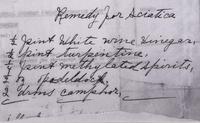 Remedy for Sciatica
pint White wine Vinegar,
pint Turpentine,
pint methylated Spirits,
opodeldock,
camphor,